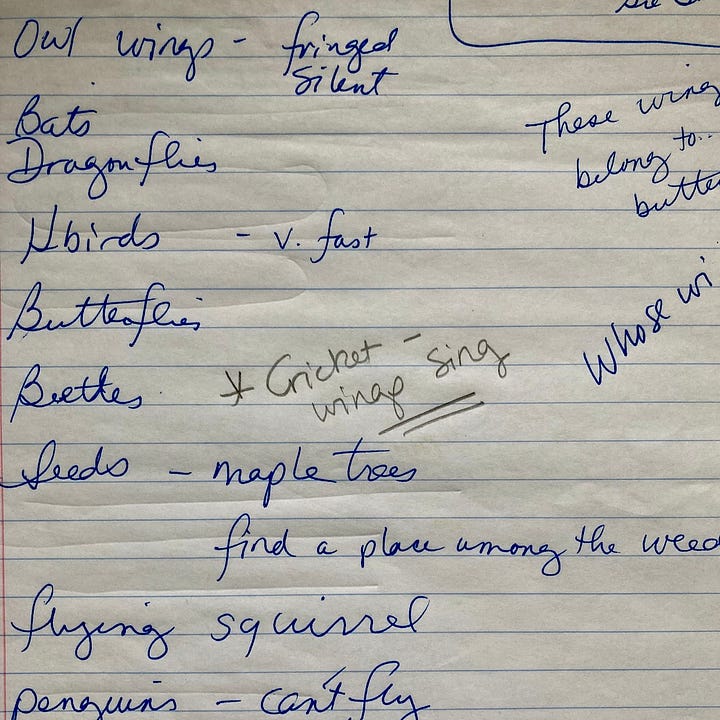 Owl wings - fringed
silent
These wings
belong to..
Bats
Dragonflies
Hbirds - v. fast
Butterflies
Whose wi
* Cricket -
wings sing
Beetles
Seeds - maple trees
find a place among the weed
flying squirrel
penguins - can't fly